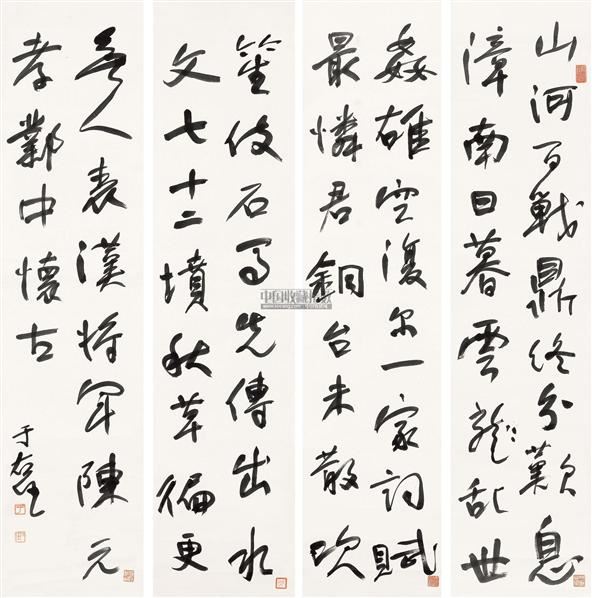 山河百戰鼎終分歎息
漳南日暮雲龍乱世
姦雄空復尔一家詞賦
最憐君銅台未散吹
笙伎石馬先傳出水
文七十二墳秋草徧更
無人表漢将軍陳元
孝鄴中懷古
于右任
中国收藏指数